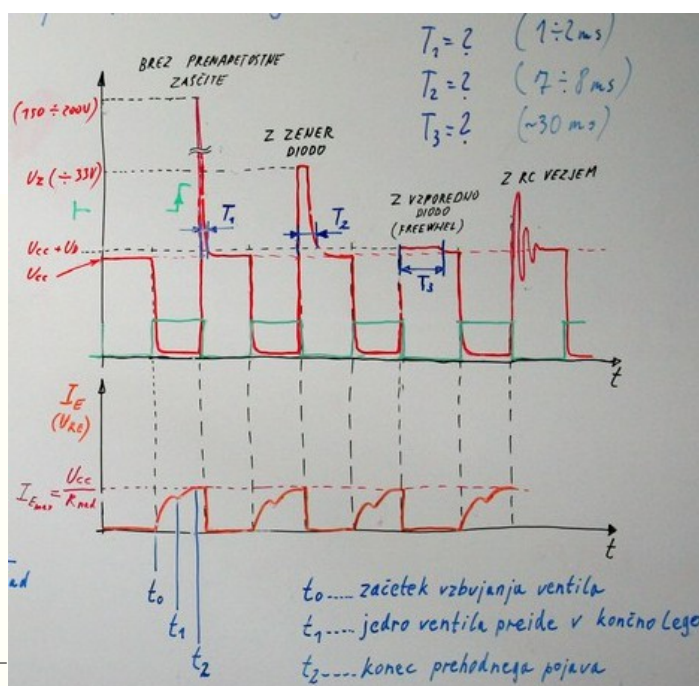 T₁ = ? (1÷2ms)
T₂ = ? (7÷8ms)
T₃ = ? (~30 ms)
BREZ PRENAPETOSTNE
ZAŠČITE
(150÷200V)
Z ZENER
DIODO
Uz (÷33V)
Z RC VEZJEM
Z VZPOREDNO
DIODO
(FREEWHEL)
T₁
T₂
T₃
Ucc
t
I_E
(U_RE)
I_Emax = Ucc
t
t₀
t₁
t₂
t₀.... začetek vzbujanja ventila
t₁.... jedro ventila preide v končno lego
t₂.... konec prehodnega pojava